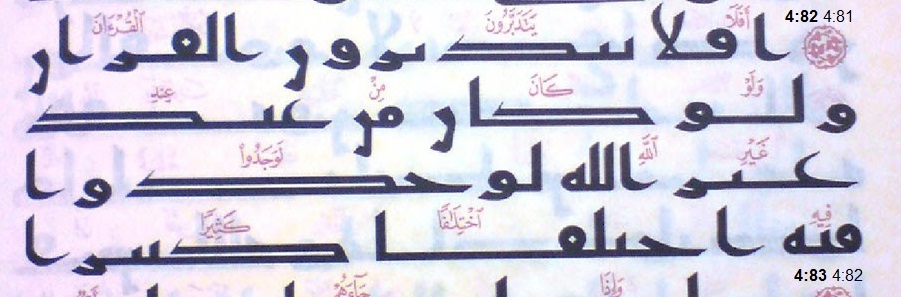 4:82 4:81
أَفَلَا يَتَدَبَّرُونَ ٱلْقُرْءَانَ
افلا يتدبرون القران
وَلَوْ كَانَ مِنْ عِندِ
ولو كان من عند
غَيْرِ ٱللَّهِ لَوَجَدُوا۟
غير الله لوجدوا
فِيهِ ٱخْتِلَٰفًا كَثِيرًا
فيه اختلفا كثيرا
4:83 4:82
وَإِذَا جَآءَهُمْ